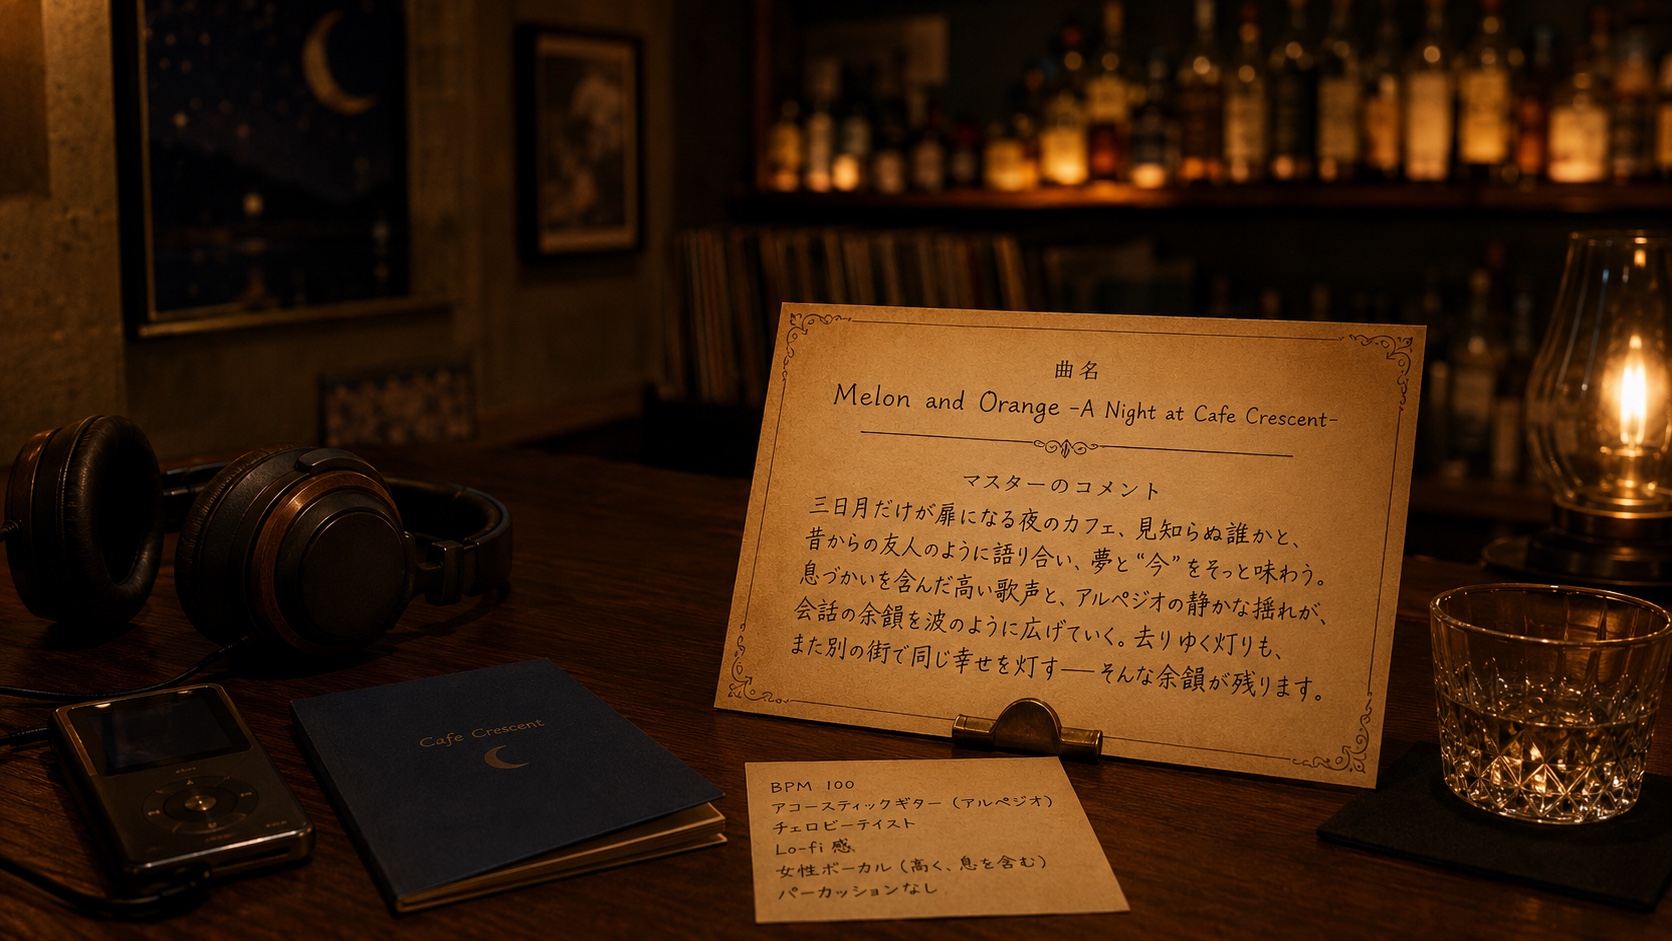 曲名
Melon and Orange -A Night at Cafe Crescent-
マスターのコメント
三日月だけが扉になる夜のカフェ、見知らぬ誰かと、
昔からの友人のように語り合い、夢と“今”をそっと味わう。
息づかいを含んだ高い歌声と、アルペジオの静かな揺れが、
会話の余韻を波のように広げていく。去りゆく灯りも、
また別の街で同じ幸せを灯す――そんな余韻が残ります。
Cafe Crescent
BPM 100
アコースティックギター（アルペジオ）
チェロビーテイスト
Lo-fi 感
女性ボーカル（高く、息を含む）
パーカッションなし